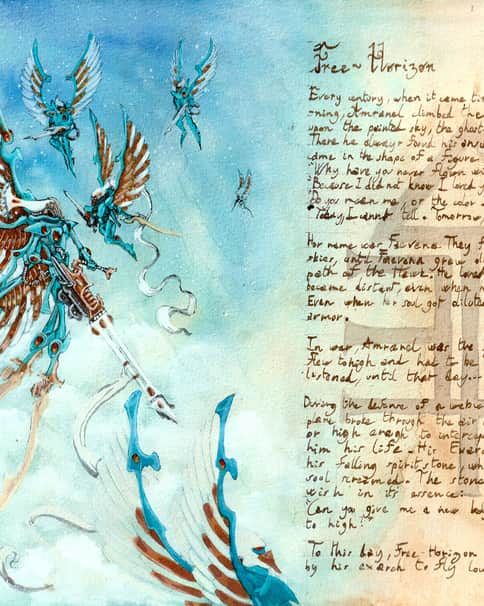 Free~Horizon
Every century, when it came tim
rning, Amranel climbed the
upon the painted sky, the ghost
There he always found his answ
came in the shape of a figure
"Why have you never flown wi
"Because I did not know I loved y
"Do you mean me, or the color
"Today, I cannot tell. Tomorrow,
Her name was Faevena. They f
skies, until Faevena grew di
path of the Hawk. He loved
became distant, even when
Even when her soul got diluted
armor.
In war, Amranel was the
flew to high and had to be
listened, until that day...
During the defense of a webwa
plane broke through the air
or high enough to intercep
him his life. His Exar
his falling spiritstone, wh
soul screamed. The stone
wish in its essence:
"Can you give me a new body
to high?"
To this day, Free-Horizon
by his exarch to fly low